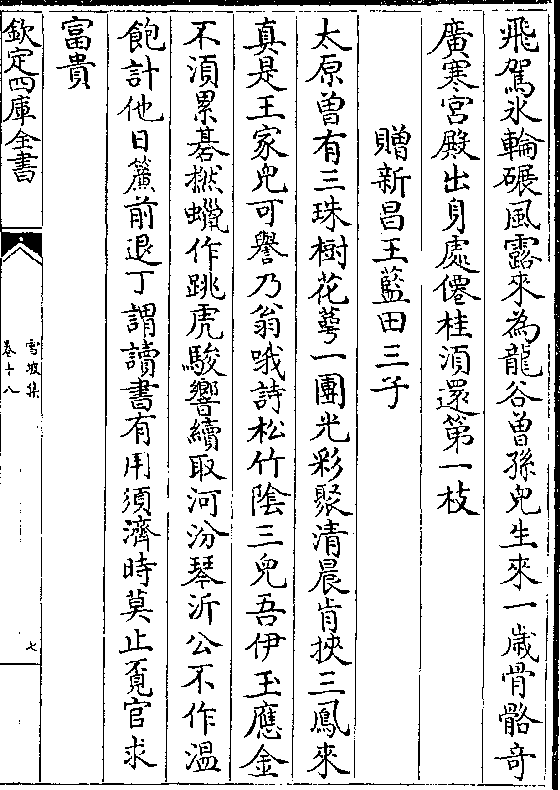 飛駕氷輪碾風露來為龍谷曽孫兒生來一歲骨骼奇
廣寒宮殿出身處僊桂湏還第一枝
贈新昌王藍田三子
太原曽有三珠樹花萼一團光彩聚清晨肯挾三鳳來
真是王家兒可譽乃翁哦詩松竹陰三兒吾伊玉應金
不湏累棊撚蠟作跳虎駿響續取河汾琴沂公不作溫
飽計他日簾前退丁謂讀書有用須濟時莫止覓官求
富貴
欽定四庫全書
雪坡集
卷十八
七